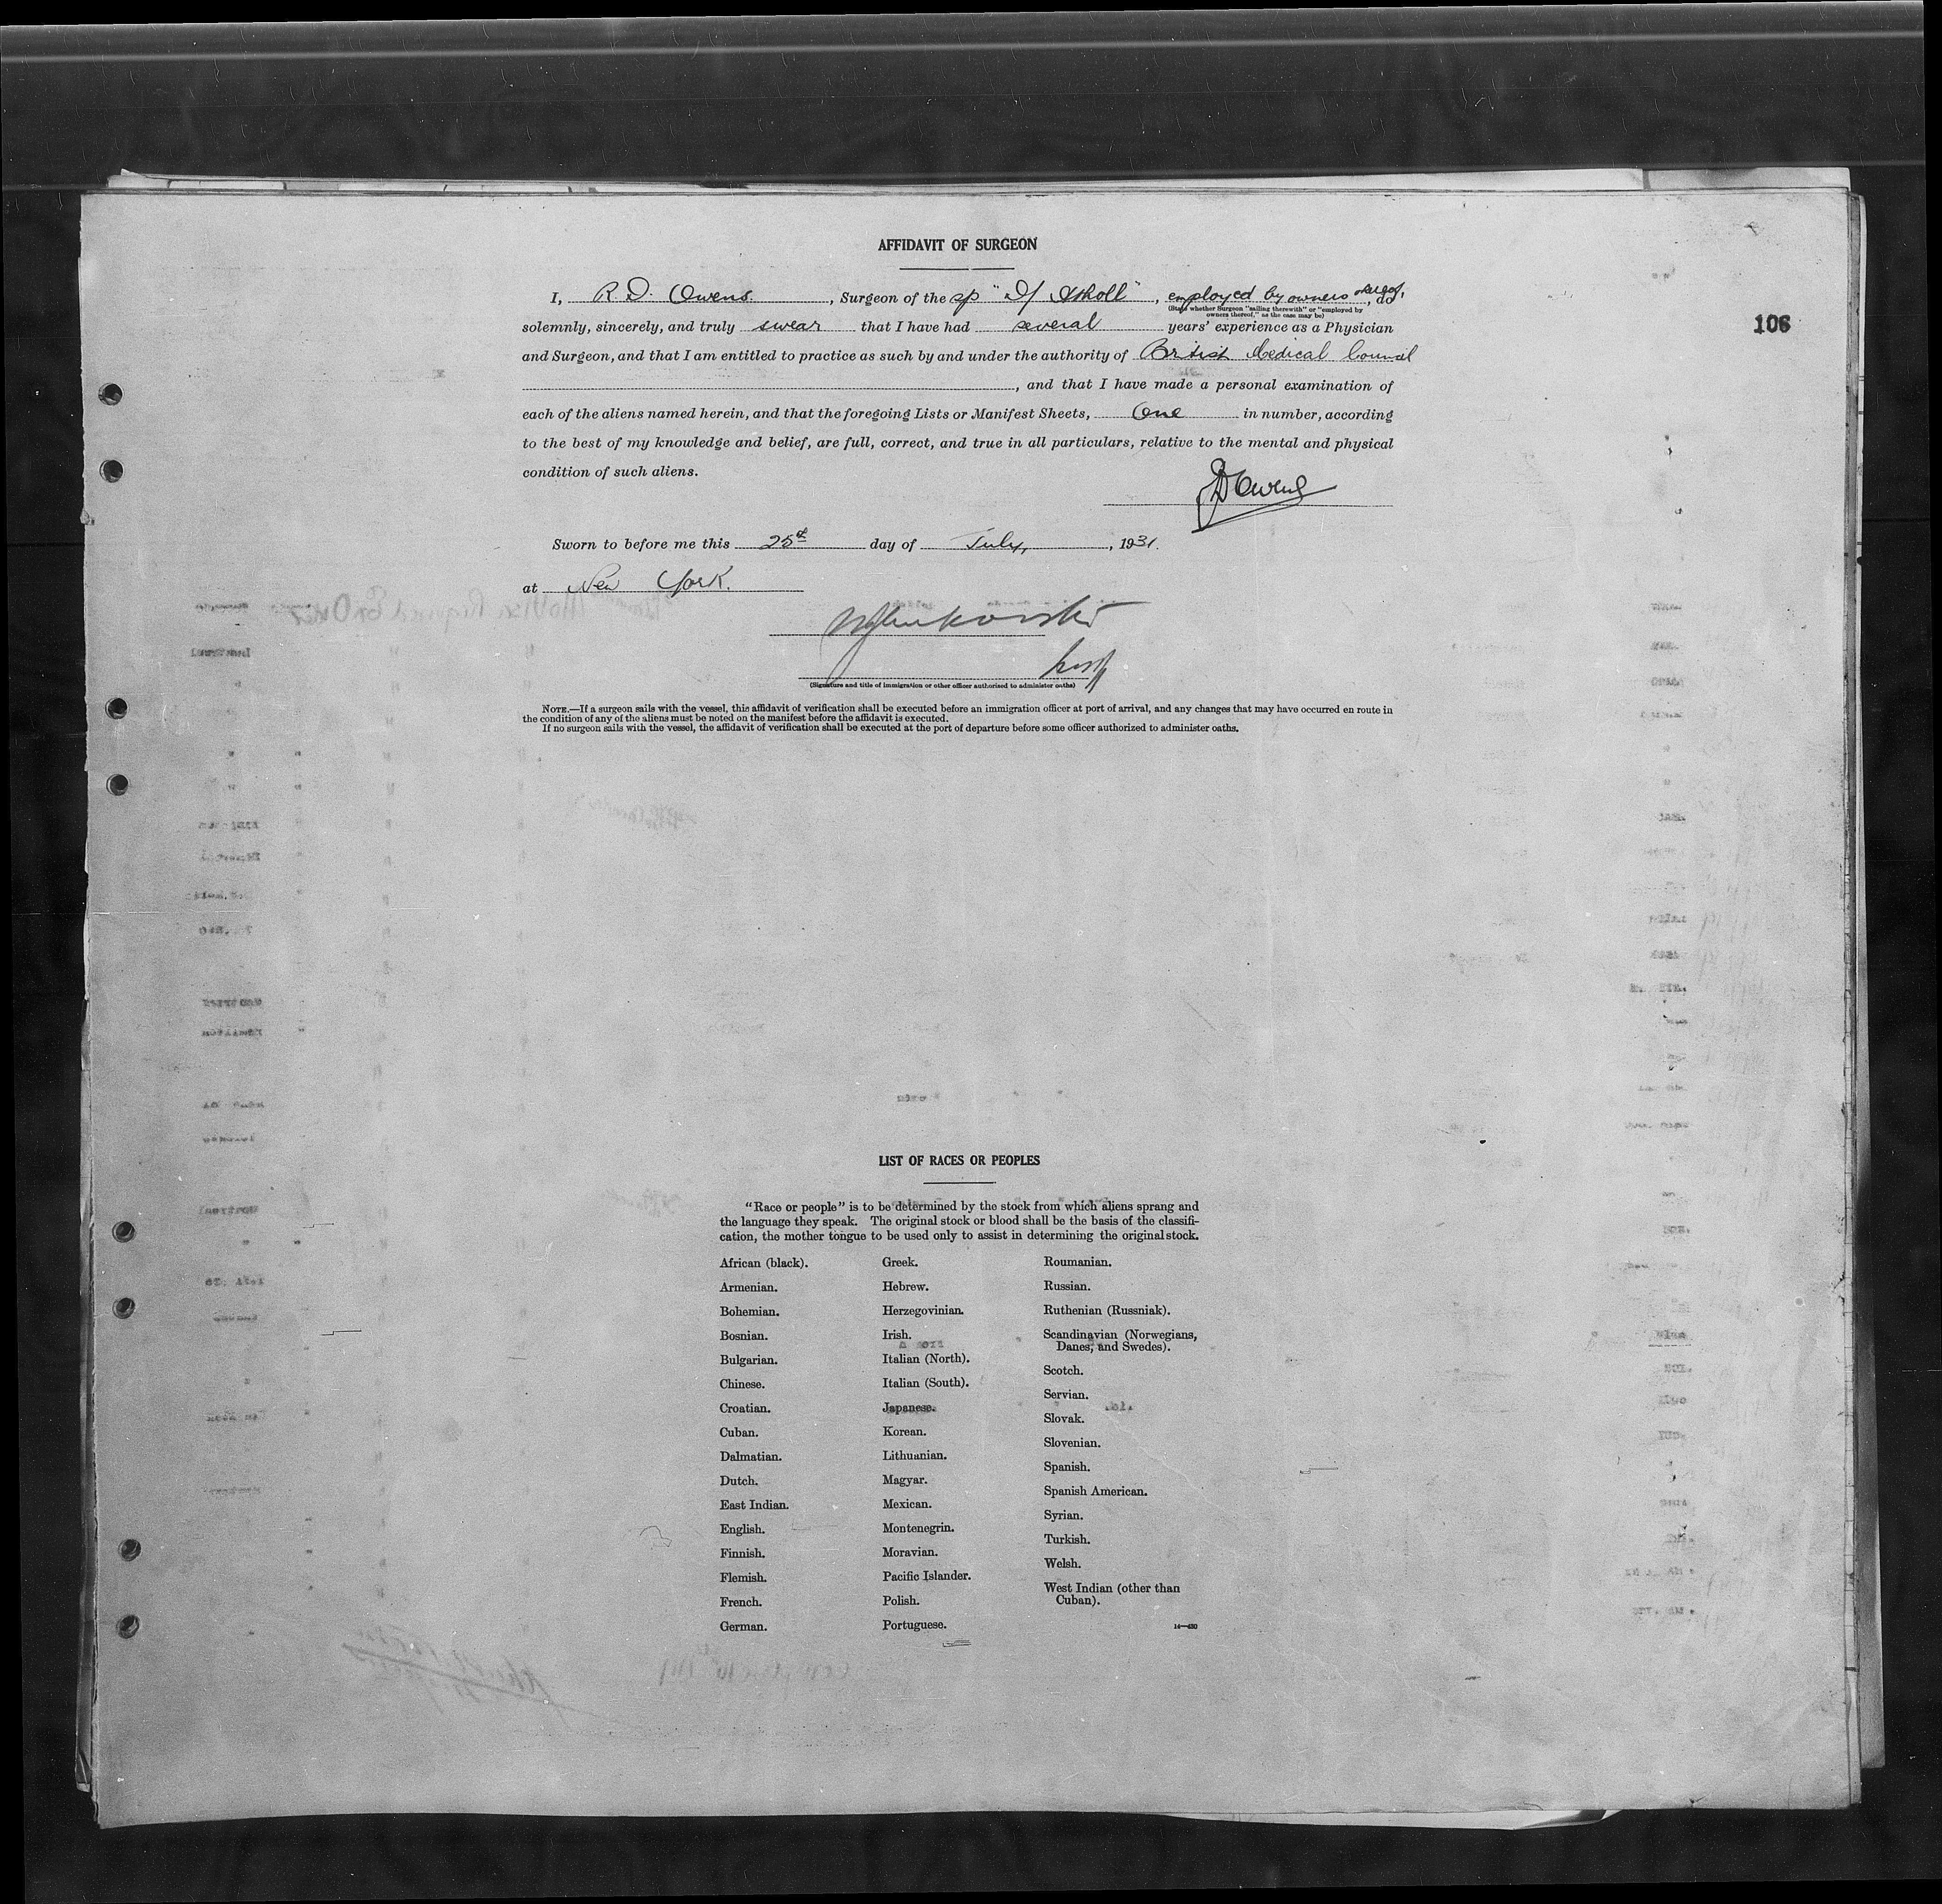 AFFIDAVIT OF SURGEON
I, R. D. Owens. , Surgeon of the sp "D/ Atholl" , employed by owners thereof, do
(State whether Surgeon "sailing therewith" or "employed by
owners thereof," as the case may be)
106
solemnly, sincerely, and truly swear that I have had several years' experience as a Physician
and Surgeon, and that I am entitled to practice as such by and under the authority of British Medical Council
, and that I have made a personal examination of
each of the aliens named herein, and that the foregoing Lists or Manifest Sheets, One in number, according
to the best of my knowledge and belief, are full, correct, and true in all particulars, relative to the mental and physical
condition of such aliens.
Owens
Sworn to before me this 25th day of July, , 1931.
at New York.
(Signature and title of immigration or other officer authorized to administer oaths)
NOTE.—If a surgeon sails with the vessel, this affidavit of verification shall be executed before an immigration officer at port of arrival, and any changes that may have occurred en route in
the condition of any of the aliens must be noted on the manifest before the affidavit is executed.
If no surgeon sails with the vessel, the affidavit of verification shall be executed at the port of departure before some officer authorized to administer oaths.
LIST OF RACES OR PEOPLES
"Race or people" is to be determined by the stock from which aliens sprang and
the language they speak. The original stock or blood shall be the basis of the classifi-
cation, the mother tongue to be used only to assist in determining the original stock.
African (black).
Armenian.
Bohemian.
Bosnian.
Bulgarian.
Chinese.
Croatian.
Cuban.
Dalmatian.
Dutch.
East Indian.
English.
Finnish.
Flemish.
French.
German.
Greek.
Hebrew.
Herzegovinian.
Irish.
Italian (North).
Italian (South).
Japanese.
Korean.
Lithuanian.
Magyar.
Mexican.
Montenegrin.
Moravian.
Pacific Islander.
Polish.
Portuguese.
Roumanian.
Russian.
Ruthenian (Russniak).
Scandinavian (Norwegians,
Danes, and Swedes).
Scotch.
Servian.
Slovak.
Slovenian.
Spanish.
Spanish American.
Syrian.
Turkish.
Welsh.
West Indian (other than
Cuban).
14—430